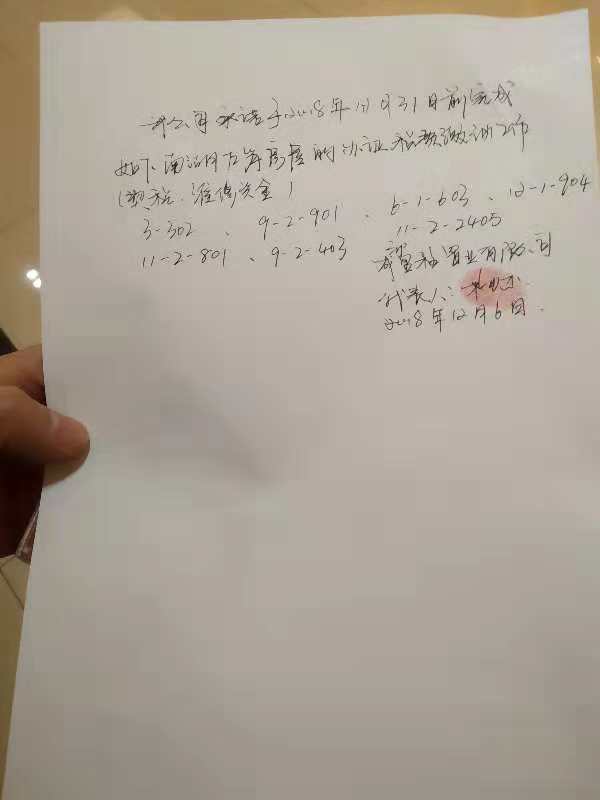 我公司承诺于2018年12月31日前完成
如下南 房屋的办证税款缴纳工作
(契税、维修资金)
3-302、9-2-901、6-1-603、12-1-904
11-2-801、9-2-403 11-2-2405
置业有限公司
代表人:
2018年12月6日.